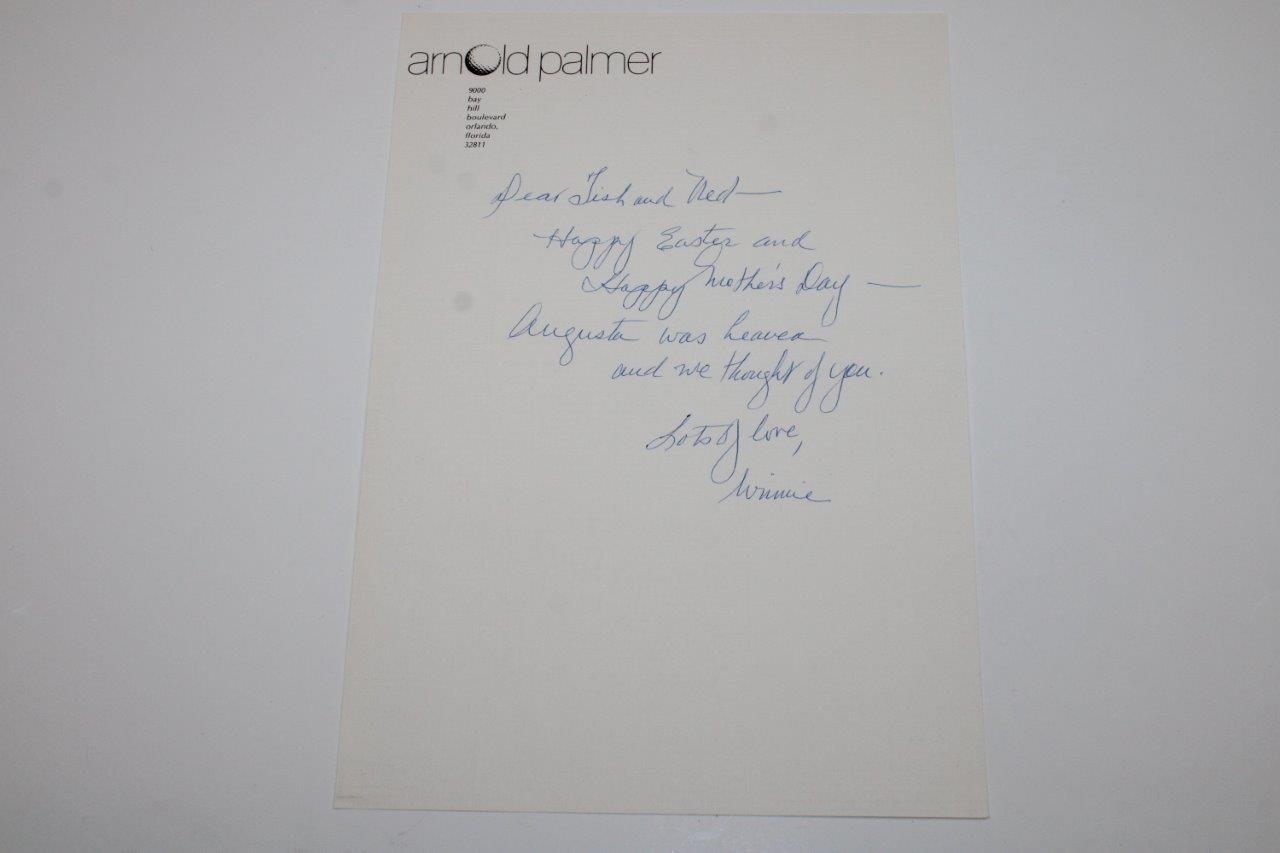 arnold palmer
9000
bay
hill
boulevard
orlando,
florida
32811
Dear Tish and Ned—
Happy Easter and
Happy Mother's Day —
Augusta was heaven
and we thought of you.
Lots of love,
Winnie